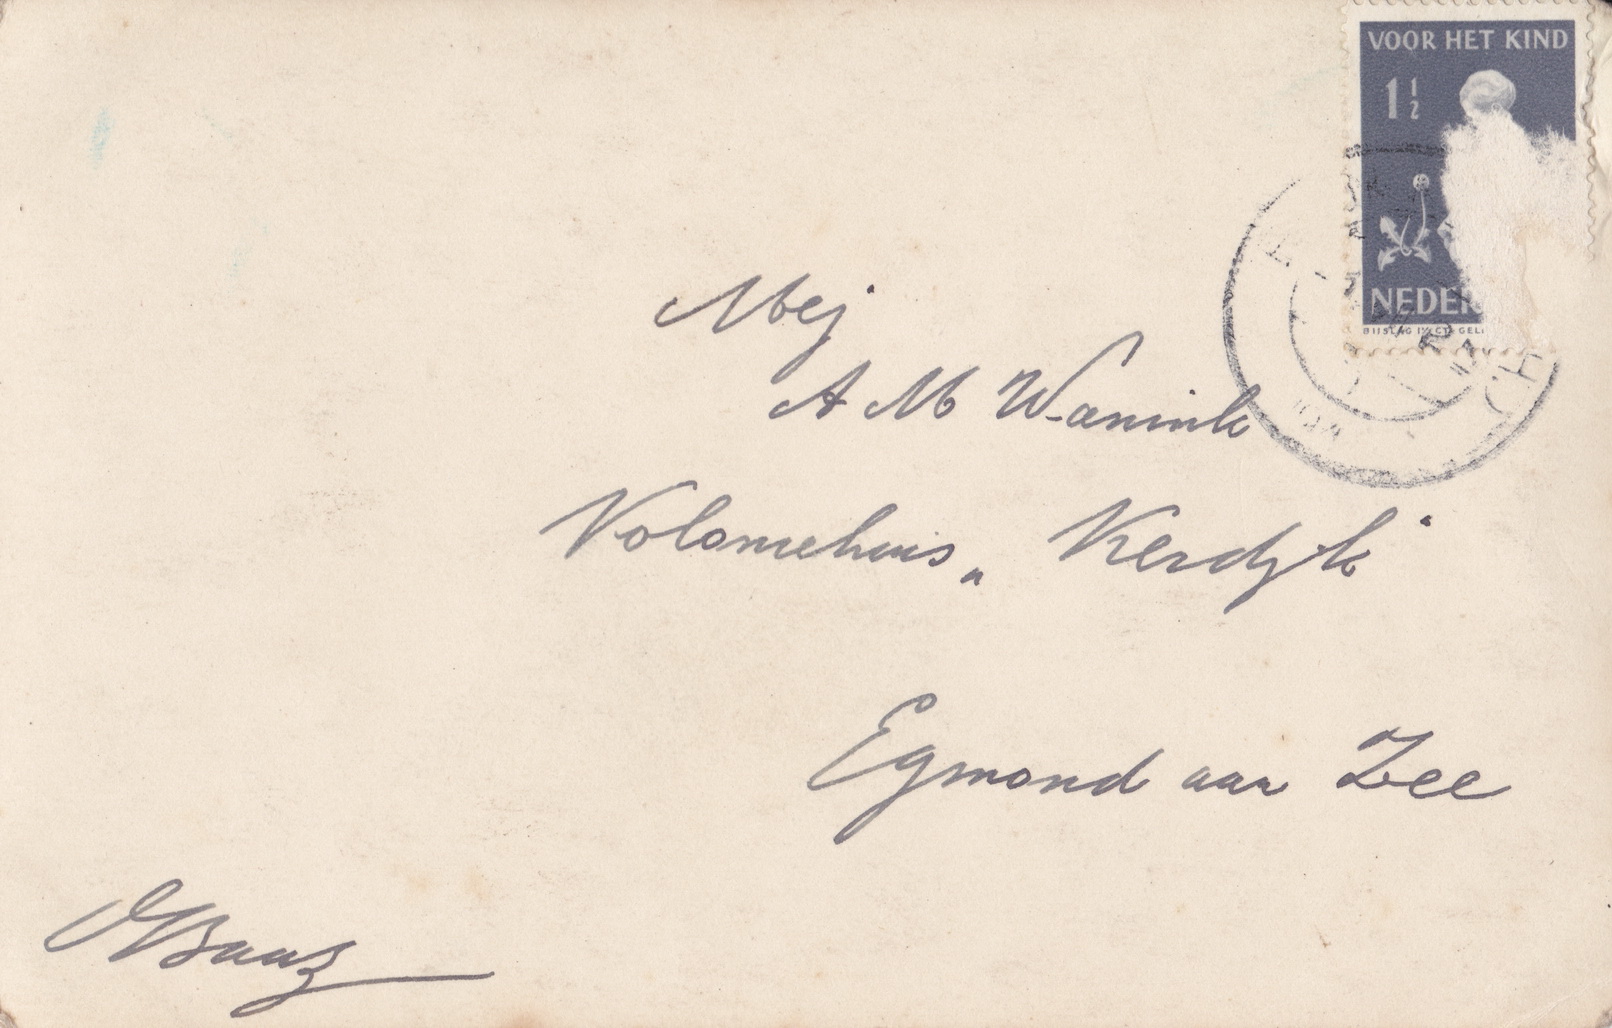 VOOR HET KIND
1 1/2
NEDER
BIJSLAG 1½ CT. GEL
Mej
A M Wanink
Koloniehuis „Kerdijk"
Egmond aan Zee